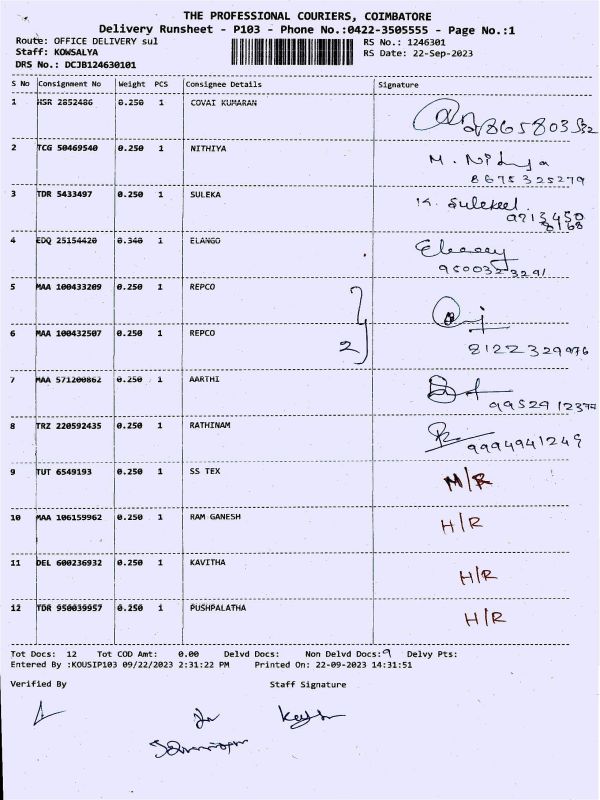 THE PROFESSIONAL COURIERS, COIMBATORE
Delivery Runsheet - P103 - Phone No.:0422-3505555 - Page No.:1
Route: OFFICE DELIVERY sul RS No.: 1246301
Staff: KOWSALYA RS Date: 22-Sep-2023
DRS No.: DCJB124630101
S No Consignment No Weight PCS Consignee Details Signature
1 HSR 2852486 0.250 1 COVAI KUMARAN
2 TCG 50469540 0.250 1 NITHIYA M. Nithya
8675325279
3 TDR 5433497 0.250 1 SULEKA K. Sulekel
9713450
8168
4 EDQ 25154420 0.340 1 ELANGO
9500323291
5 MAA 100433209 0.250 1 REPCO
6 MAA 100432507 0.250 1 REPCO 2 8122329976
7 MAA 571200862 0.250 1 AARTHI
9952912377
8 TRZ 220592435 0.250 1 RATHINAM
9994941249
9 TUT 6549193 0.250 1 SS TEX H/R
10 MAA 106159962 0.250 1 RAM GANESH H/R
11 DEL 600236932 0.250 1 KAVITHA H/R
12 TDR 950039957 0.250 1 PUSHPALATHA H/R
Tot Docs: 12 Tot COD Amt: 0.00 Delvd Docs: Non Delvd Docs: 9 Delvy Pts:
Entered By :KOUSIP103 09/22/2023 2:31:22 PM Printed On: 22-09-2023 14:31:51
Verified By Staff Signature